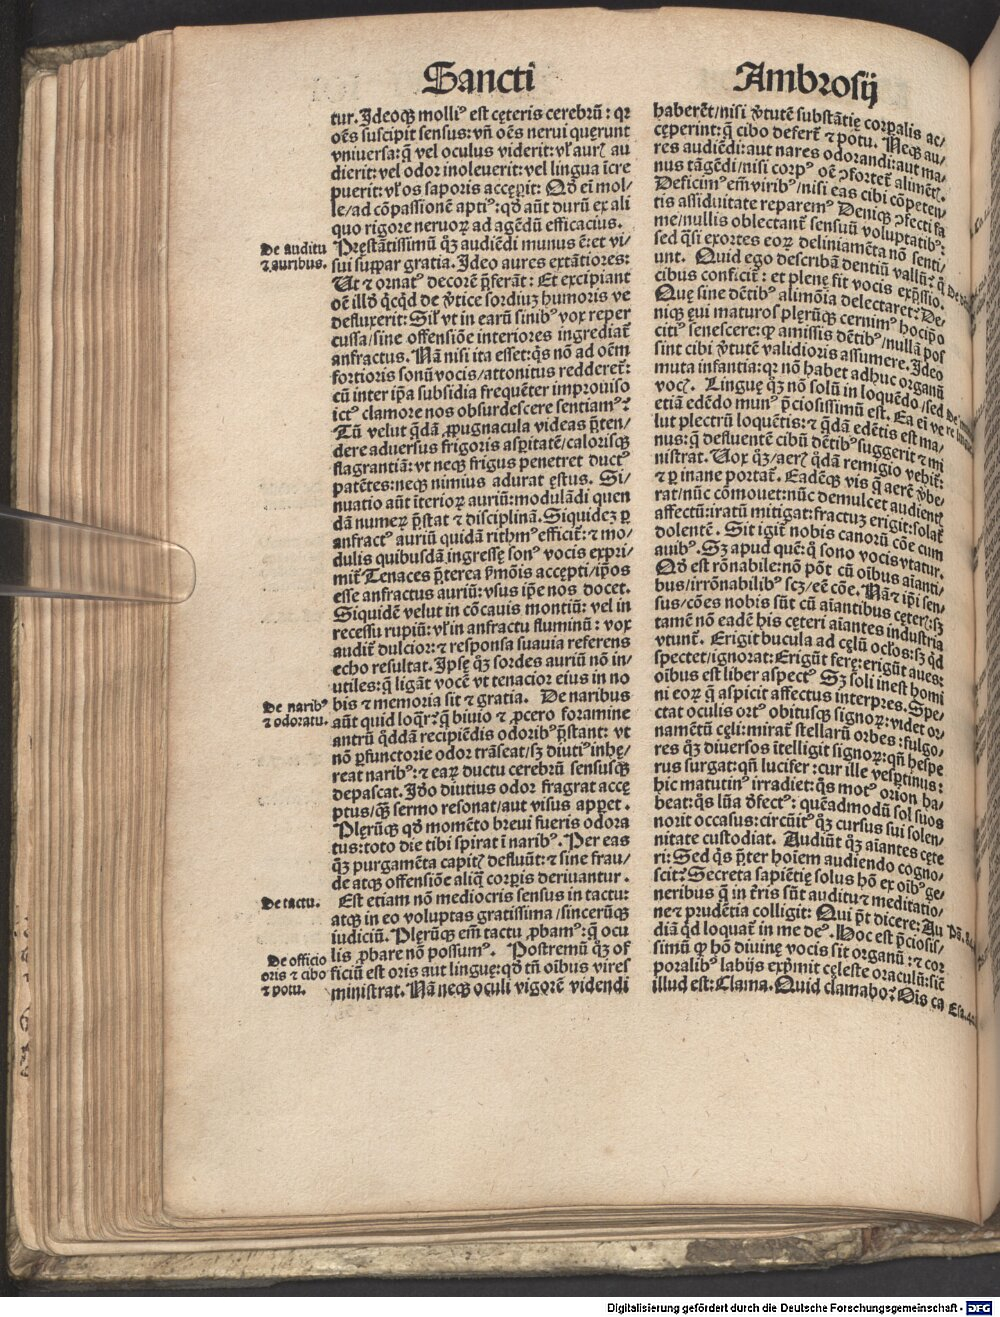 Sancti Ambrosij
tur. Ideoqꝫ molliꝰ est cęteris cerebrū: qꝛ
oēs suscipit sensus: vñ oēs nerui quęrunt
vniuersa: q̄ vel oculus viderit: vl̕ aurꝭ au
dierit: vel odor inoleuerit: vel lingua īcre
puerit: vl̕ os saporis accępit: Qđ ei mol⸗
le/ad cōpassionē aptiꝰ: qđ aūt durū ex ali
quo rigore neruoꝝ ad agēdū efficacius.
De auditu
⁊ auribus.
Pręstātissimū qꝫ audiēdi munus ē: et vi⸗
sui suꝑpar gratia. Ideo aures extātiores:
Ut ⁊ ornatꝰ decorē p̄ferāt: Et excipiant
oē illđ qcqđ de v̓tice sordiuꝫ humoris ve
defluxerit: Sil̕ vt in earū sinibꝰ vox reper
cussa/sine offensiōe interiores ingrediat̄
anfractus. Nā nisi ita esset: q̄s nō ad oēm
fortioris sonū vocis/attonitus redderet̄:
cū inter ip̄a subsidia frequēter improuiso
ictꝰ clamore nos obsurdescere sentiamꝰ?
Tū velut q̄dā ꝓpugnacula videas p̄ten/
dere aduersus frigoris asꝑitatē/calorisqꝫ
flagrantiā: vt neqꝫ frigus penetret ductꝰ
patētes: neqꝫ nimius adurat ęstus. Si/
nuatio aūt īterioꝝ auriū: modulādi quen
dā numeꝝ p̄stat ⁊ disciplinā. Siquideꝫ ꝑ
anfractꝰ auriū quidā rithmꝰ efficit̄: ⁊ mo/
dulis quibusdā ingressę sonꝰ vocis expri/
mit̄ Tenaces p̄terea s̓mōis accępti/ip̄os
esse anfractus auriū: vsus ip̄e nos docet.
Siquidē velut in cōcauis montiū: vel in
recessu rupiū: vl̕ in anfractu fluminū: vox
audit̄ dulcior: ⁊ responsa suauia referens
echo resultat. Ipsę qꝫ sordes auriū nō in/
utiles: q̄ ligāt vocē vt tenacior eius in no
De naribꝰ
⁊ odoratu.
bis ⁊ memoria sit ⁊ gratia. De naribus
aūt quid loqr̄? q̄ biuio ⁊ ꝓcero foramine
antrū qđdā recipiēdis odoribꝰ p̄stant: vt
nō ꝑfunctorie odor trāseat/sꝫ diutiꝰ inhę/
reat naribꝰ: ⁊ eaꝝ ductu cerebrū sensusqꝫ
depascat. Iđo diutius odor fragrat accę
ptus/qꝫ sermo resonat/aut visus apꝑet.
Plęrūqꝫ qđ momēto breui fueris odora
tus: toto die tibi spirat ī naribꝰ. Per eas
qꝫ purgamēta capitꝭ defluūt: ⁊ sine frau/
de atqꝫ offensiōe aliq̄ corꝑis deriuantur.
De tactu.
Est etiam nō mediocris sensus in tactu:
atqꝫ in eo voluptas gratissima/sincerūqꝫ
iudiciū. Plęrūqꝫ em̄ tactu ꝓbamꝰ: q̄ ocu
lis ꝓbare nō possumꝰ. Postremū qꝫ of
De officio
oris ⁊ cibo
⁊ potu.
ficiū est oris aut linguę: qđ tñ oībus vires
ministrat. Nā neqꝫ oculi vigorē videndi
haberēt/nisi v̓tutē substātię corꝑalis ac/
cęperint: q̄ cibo defert̄ ⁊ potu. Neqꝫ au/
res audiēdi: aut nares odorandi: aut ma/
nus tāgēdi/nisi corpꝰ oē ꝯfortet̄ alimētꝭ.
Deficimꝰ em̄ viribꝰ/nisi eas cibi cōpeten/
tis assiduitate reparemꝰ Deniqꝫ ꝯfecti fa
me/nullis oblectant̄ sensuū voluptatibꝰ:
sed q̄si exortes eoꝝ deliniamēta nō senti/
unt. Quid ego describā dentiū vallū? q̄
cibus conficit̄: et plenę fit vocis exp̄ssio.
Quę sine dētibꝰ alimōia delectaret? De/
niqꝫ ęui maturos plęrūqꝫ cernimꝰ hocip̄o
citiꝰ senescere: qꝫ amissis dētibꝰ/nullā pos
sint cibi v̓tutē validioris assumere. Ideo
muta infantia: qꝛ nō habet adhuc organū
vocꝭ. Linguę qꝫ nō solū in loquēdo/sed
etiā edēdo munꝰ p̄ciosissimū est. Ea ei ve
lut plectrū loquētis: ⁊ q̄dā edētis est ma/
nus: q̄ defluentē cibū dētibꝰ suggerit ⁊ mi
nistrat. Uox qꝫ/aerꝭ q̄dā remigio vehit̄:
⁊ ꝑ inane portat̄. Eadēqꝫ vis q̄ aerē v̓be/
rat/nūc cōmouet: nūc demulcet audientꝭ
affectū: iratū mitigat: fractuꝫ erigit: solat̄
dolentē. Sit igit̄ nobis canorū cōe cum
auibꝰ. Sꝫ apud quē: q̄ sono vocis vtatur.
Qđ est rōnabile: nō pōt cū oībus aīanti/
bus/irrōnabilibꝰ scꝫ/eē cōe. Nā ⁊ ip̄i sen/
sus/cōes nobis sūt cū aīantibus cęterꝭ: sꝫ
tamē nō eadē his cęteri aīantes industria
vtunt̄. Erigit bucula ad cęlū ocl̕os: sꝫ qđ
spectet/ignorat: Erigūt ferę: erigūt aues:
oībus est liber aspectꝰ Sꝫ soli inest homi
ni eoꝝ q̄ aspicit affectus interpres. Spe/
ctat oculis ortꝰ obitusqꝫ signoꝝ: videt or/
namētū cęli: mirat̄ stellarū orbes: fulgo/
res qꝫ diuersos ītelligit signoꝝ: qñ hespe
rus surgat: qñ lucifer: cur ille vesꝑtinus:
hic matutinꝰ irradiet: q̄s motꝰ orion ha/
beat: q̄s lūa d̓fectꝰ: quēadmodū sol suos
norit occasus: circūitꝰ qꝫ cursus sui solen/
nitate custodiat. Audiūt qꝫ aīantes cęte
ri: Sed q̄s p̄ter hoīem audiendo cogno/
scit? Secreta sapiētię solus hō ex oībꝰ ge/
neribus q̄ in t̄ris sūt auditu ⁊ meditatio/
ne ⁊ prudētia colligit: Qui p̄t dicere: Au
diā qđ loquat̄ in me deꝰ. Hoc est p̄ciosis/
simū qꝫ hō diuinę vocis sit organū: ⁊ cor
poralibꝰ labijs exp̄mit cęleste oraculū: sic̄
illud est: Clama. Quid clamabo? Oīs ca
Esa. 40
Digitalisierung gefördert durch die Deutsche Forschungsgemeinschaft - DFG